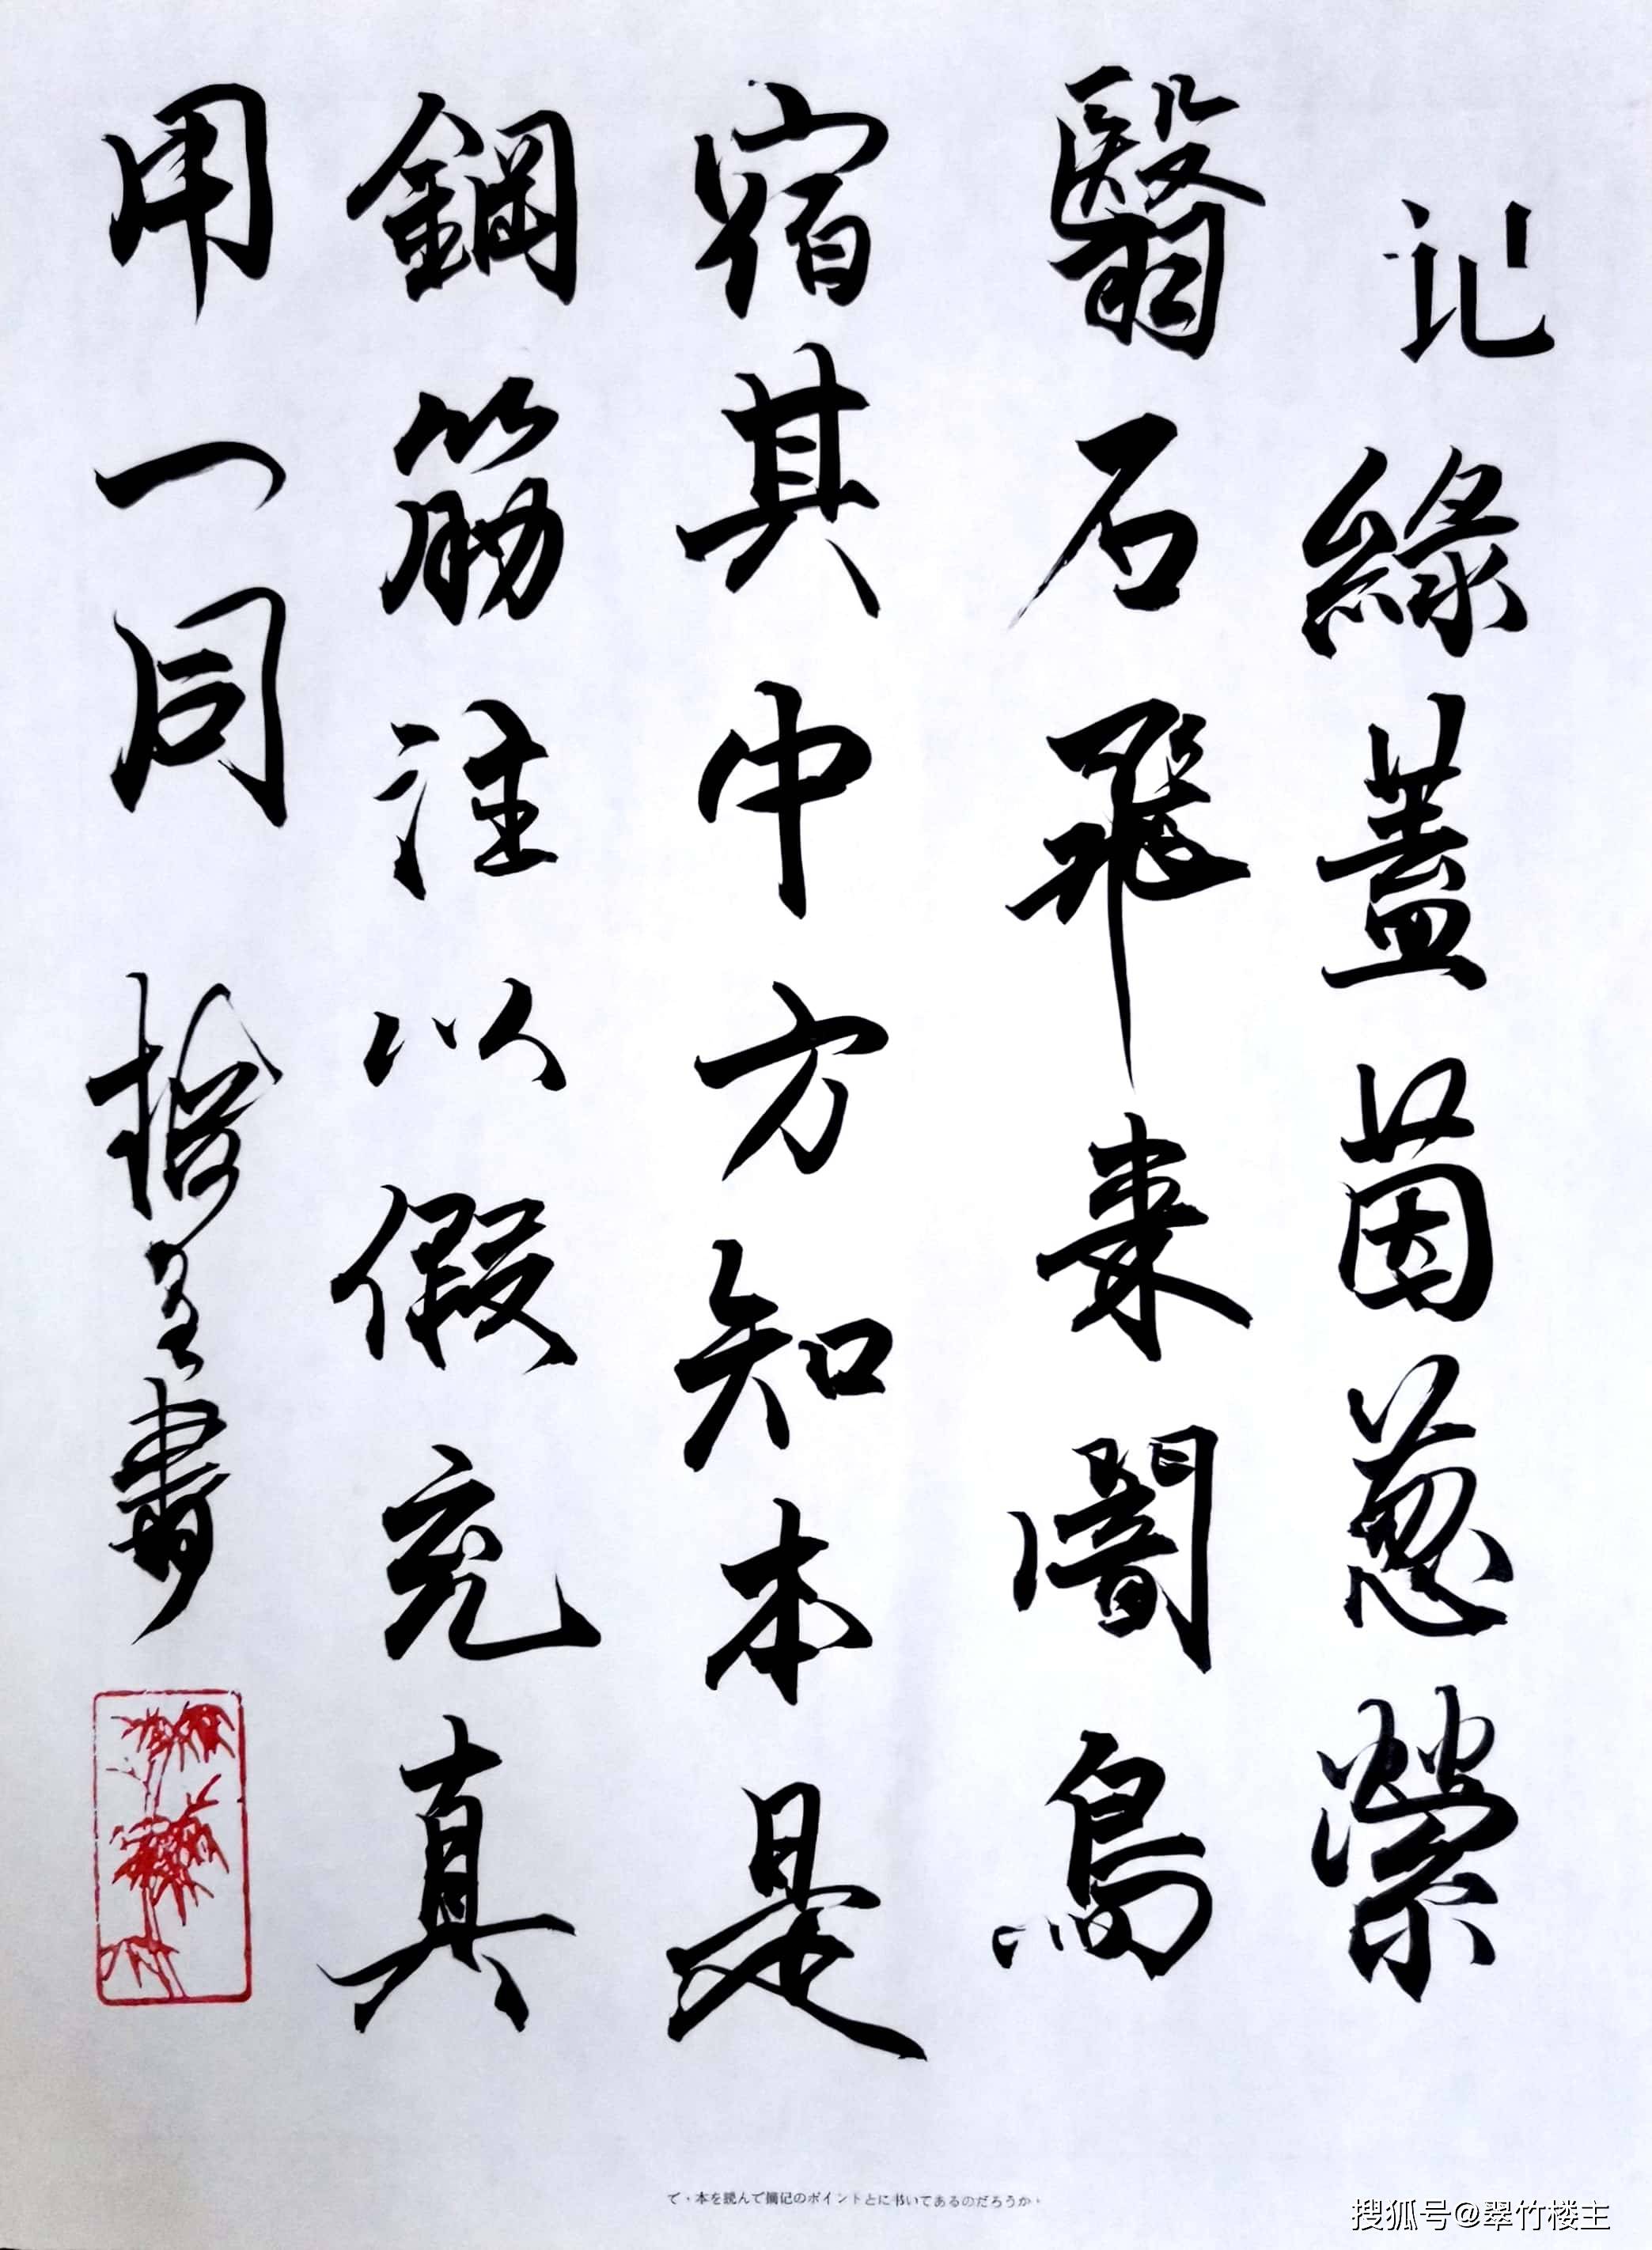 记綠蓋茵蔥縈
翳石飛來闇鳥
宿其中方知本是
鋼筋注以假充真
用一同 書
で・本を読んで摘记のポイントとに书いてあるのだろうか・
搜狐号@翠竹楼主